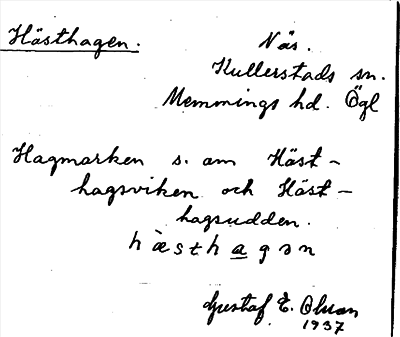 Hästhagen.
Näs.
Kullerstads sn.
Memmings hd. Ögl
Hagmarken s. om Häst-
hagsviken och Häst-
hagsudden.
hà̀sthagən
Gustaf E. Olson
1937